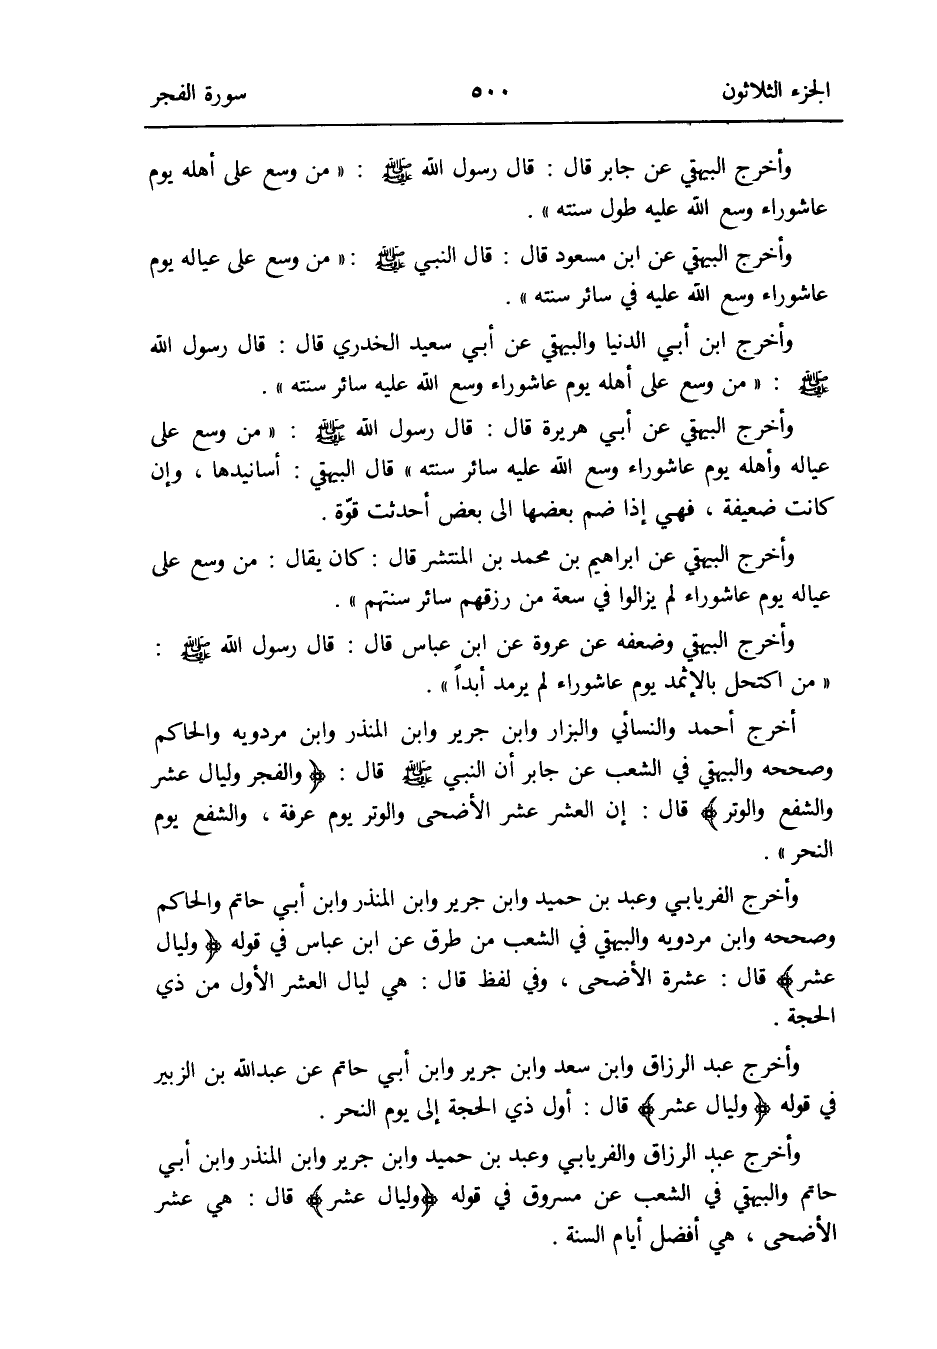 الجزء الثلاثون ٥٠٠ سورة الفجر
وأخرج البيهقي عن جابر قال : قال رسول الله ﷺ : « من وسع على أهله يوم
عاشوراء وسع الله عليه طول سنته » .
وأخرج البيهقي عن ابن مسعود قال : قال النبي ﷺ : « من وسع على عياله يوم
عاشوراء وسع الله عليه في سائر سنته » .
وأخرج ابن أبي الدنيا والبيهقي عن أبي سعيد الخدري قال : قال رسول الله
ﷺ : « من وسع على أهله يوم عاشوراء وسع الله عليه سائر سنته » .
وأخرج البيهقي عن أبي هريرة قال : قال رسول الله ﷺ : « من وسع على
عياله وأهله يوم عاشوراء وسع الله عليه سائر سنته » قال البيهقي : أسانيدها ، وإن
كانت ضعيفة ، فهي إذا ضم بعضها الى بعض أحدثت قوّة .
وأخرج البيهقي عن ابراهيم بن محمد بن المنتشر قال : كان يقال : من وسع على
عياله يوم عاشوراء لم يزالوا في سعة من رزقهم سائر سنتهم » .
وأخرج البيهقي وضعفه عن عروة عن ابن عباس قال : قال رسول الله ﷺ :
« من اكتحل بالإثمد يوم عاشوراء لم يرمد أبداً » .
أخرج أحمد والنسائي والبزار وابن جرير وابن المنذر وابن مردويه والحاكم
وصححه والبيهقي في الشعب عن جابر أن النبي ﷺ قال : ﴿ والفجر وليال عشر
والشفع والوتر ﴾ قال : إن العشر عشر الأضحى والوتر يوم عرفة ، والشفع يوم
النحر » .
وأخرج الفريابي وعبد بن حميد وابن جرير وابن المنذر وابن أبي حاتم والحاكم
وصححه وابن مردويه والبيهقي في الشعب من طرق عن ابن عباس في قوله ﴿ وليال
عشر ﴾ قال : عشرة الأضحى ، وفي لفظ قال : هي ليال العشر الأول من ذي
الحجة .
وأخرج عبد الرزاق وابن سعد وابن جرير وابن أبي حاتم عن عبدالله بن الزبير
في قوله ﴿ وليال عشر ﴾ قال : أول ذي الحجة إلى يوم النحر .
وأخرج عبد الرزاق والفريابي وعبد بن حميد وابن جرير وابن المنذر وابن أبي
حاتم والبيهقي في الشعب عن مسروق في قوله ﴿ وليال عشر ﴾ قال : هي عشر
الأضحى ، هي أفضل أيام السنة .